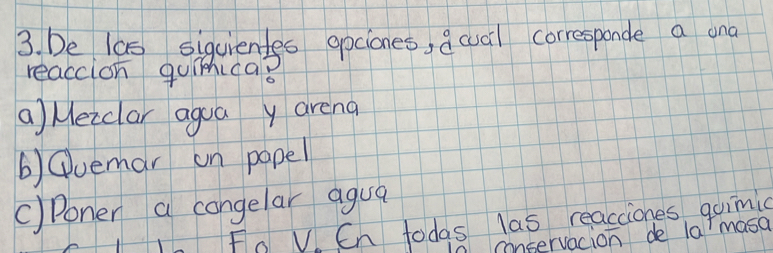 3. De las siguientes opciones, ¿cuál corresponde a una
reacción química?
a) Mezclar agua y arena
b) Quemar un papel
c) Poner a congelar agua
F o V. En todas las reacciones químic
conservación de la masa